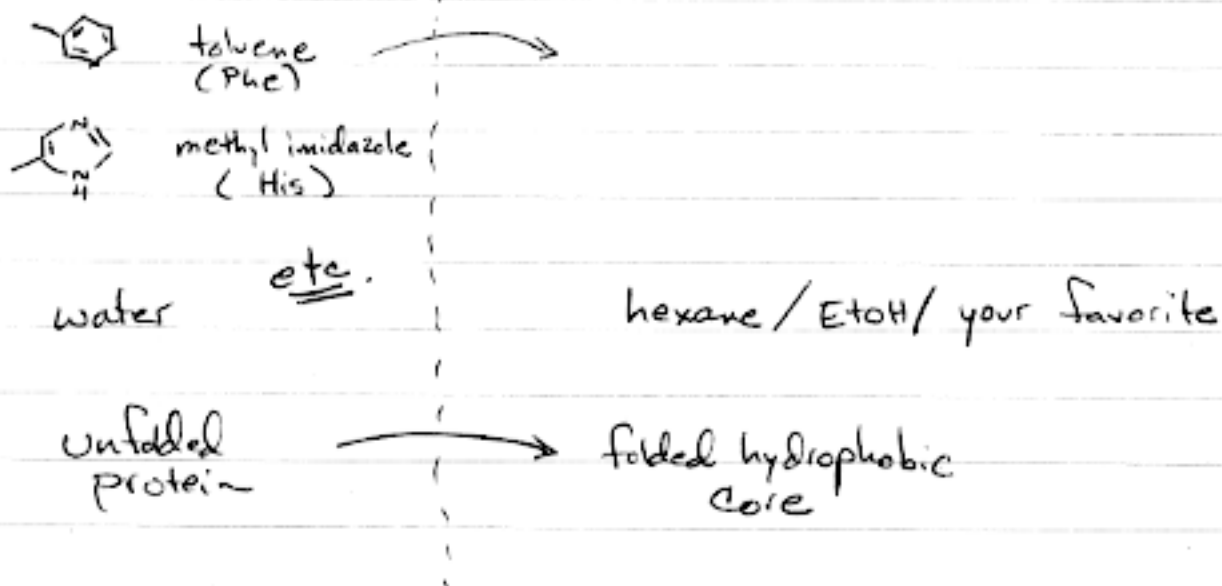 toluene
(Phe)
N
methyl imidazole
N
H
(His)
etc.
water
hexane / EtOH / your favorite
unfolded
protein
folded hydrophobic
core